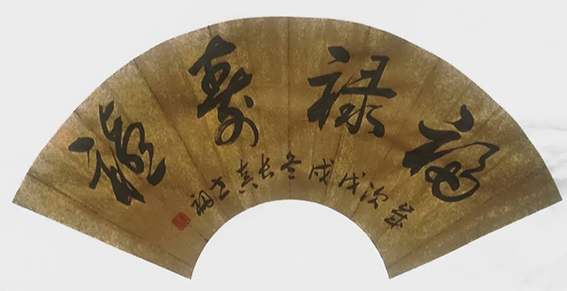 福禄寿禧
岁次戊戌冬长